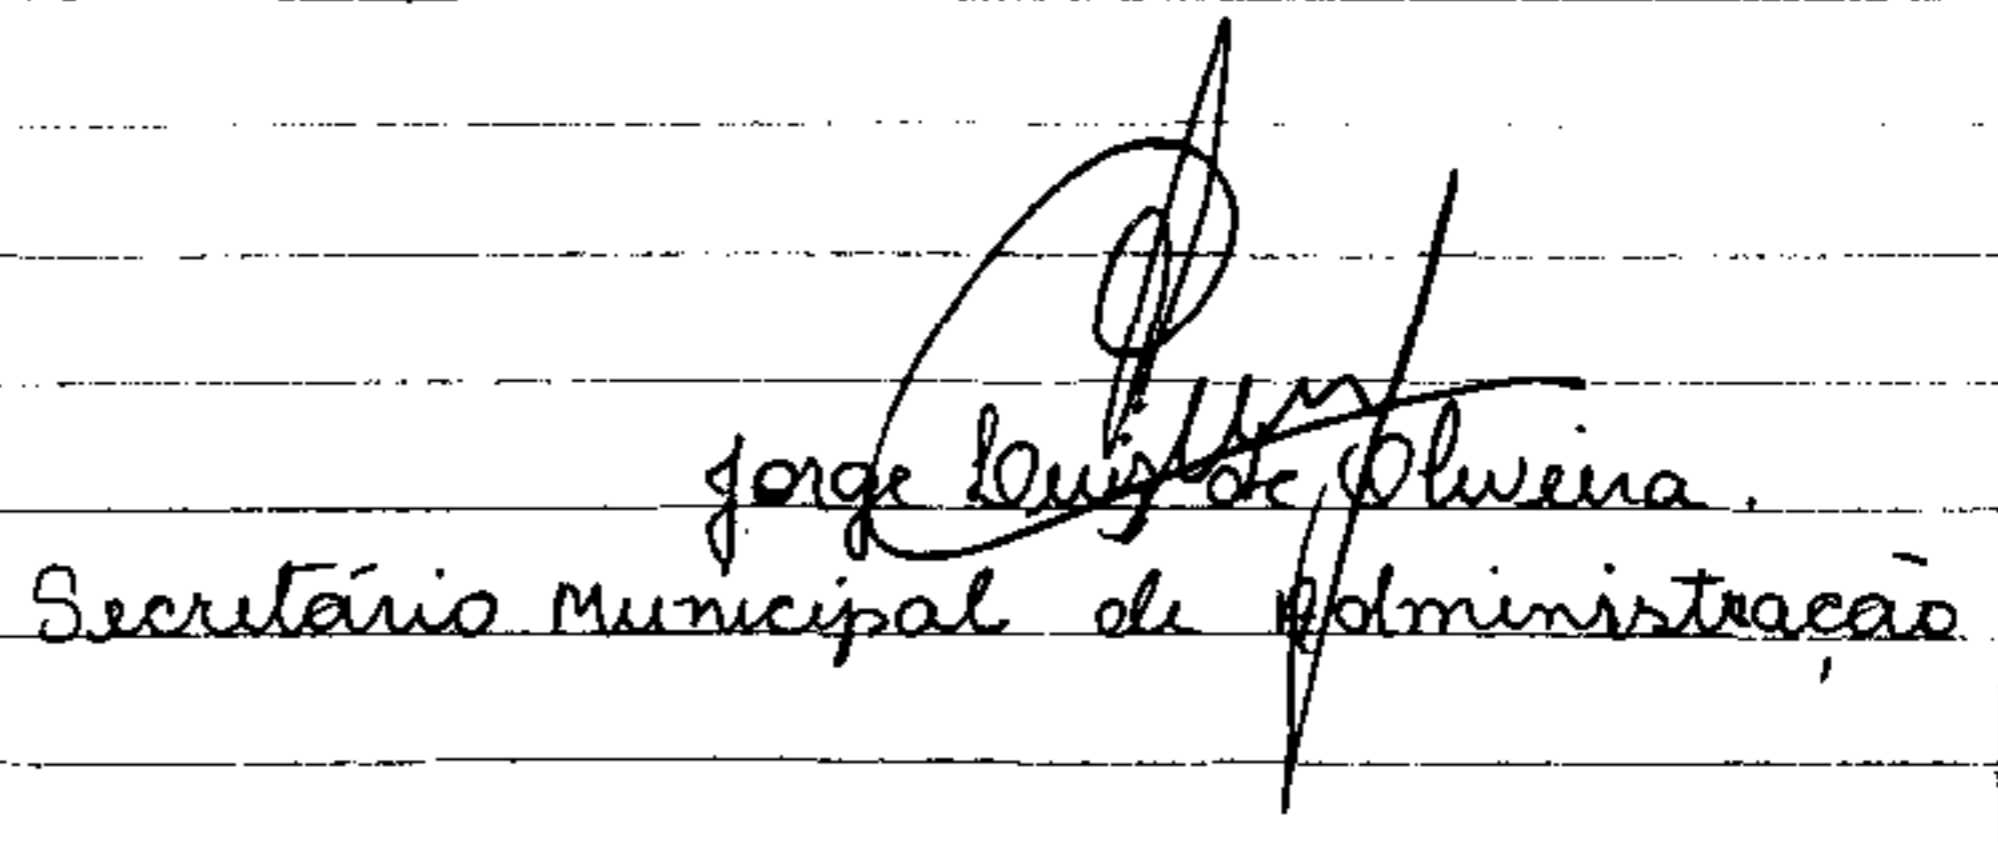 Jorge Luiz de Oliveira.
Secretário Municipal de Administração